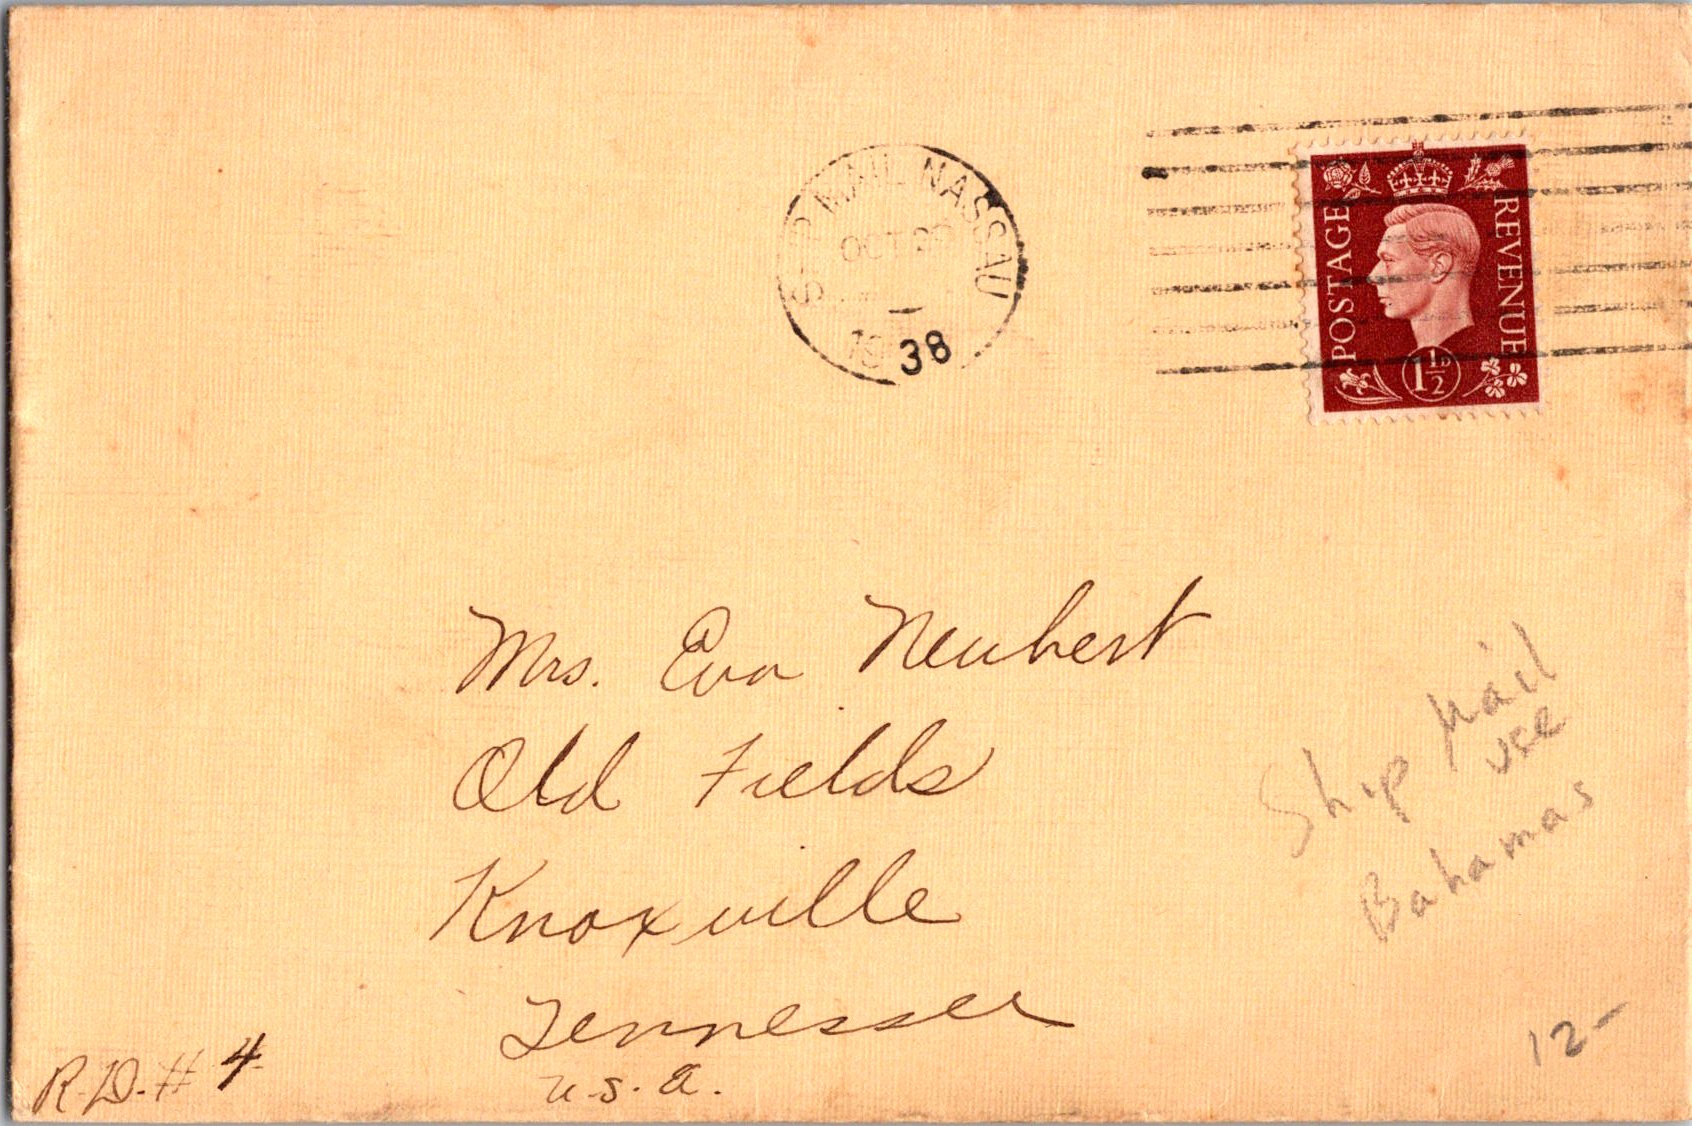 SHIP MAIL NASSAU
OCT
1938
POSTAGE
REVENUE
1½D
Mrs. Eva Neubert
Old Fields
Knoxville
Tennessee
U.S.A.
R.D. # 4
Ship Mail
use
Bahamas
12-